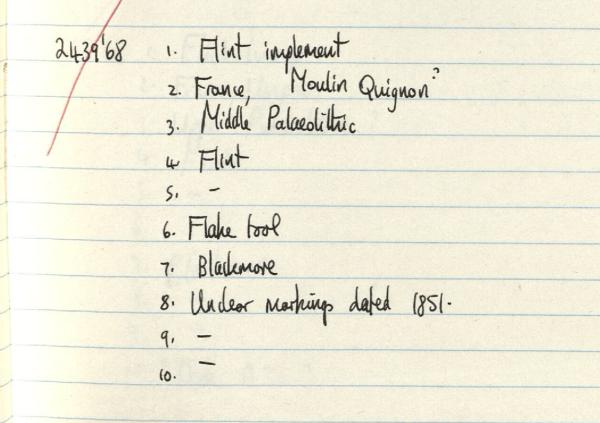 2439'68 1. Flint implement
2. France, Moulin Quignon?
3. Middle Palaeolithic
4. Flint
5. –
6. Flake tool
7. Blackmore
8. Unclear markings dated 1851.
9. –
10. –